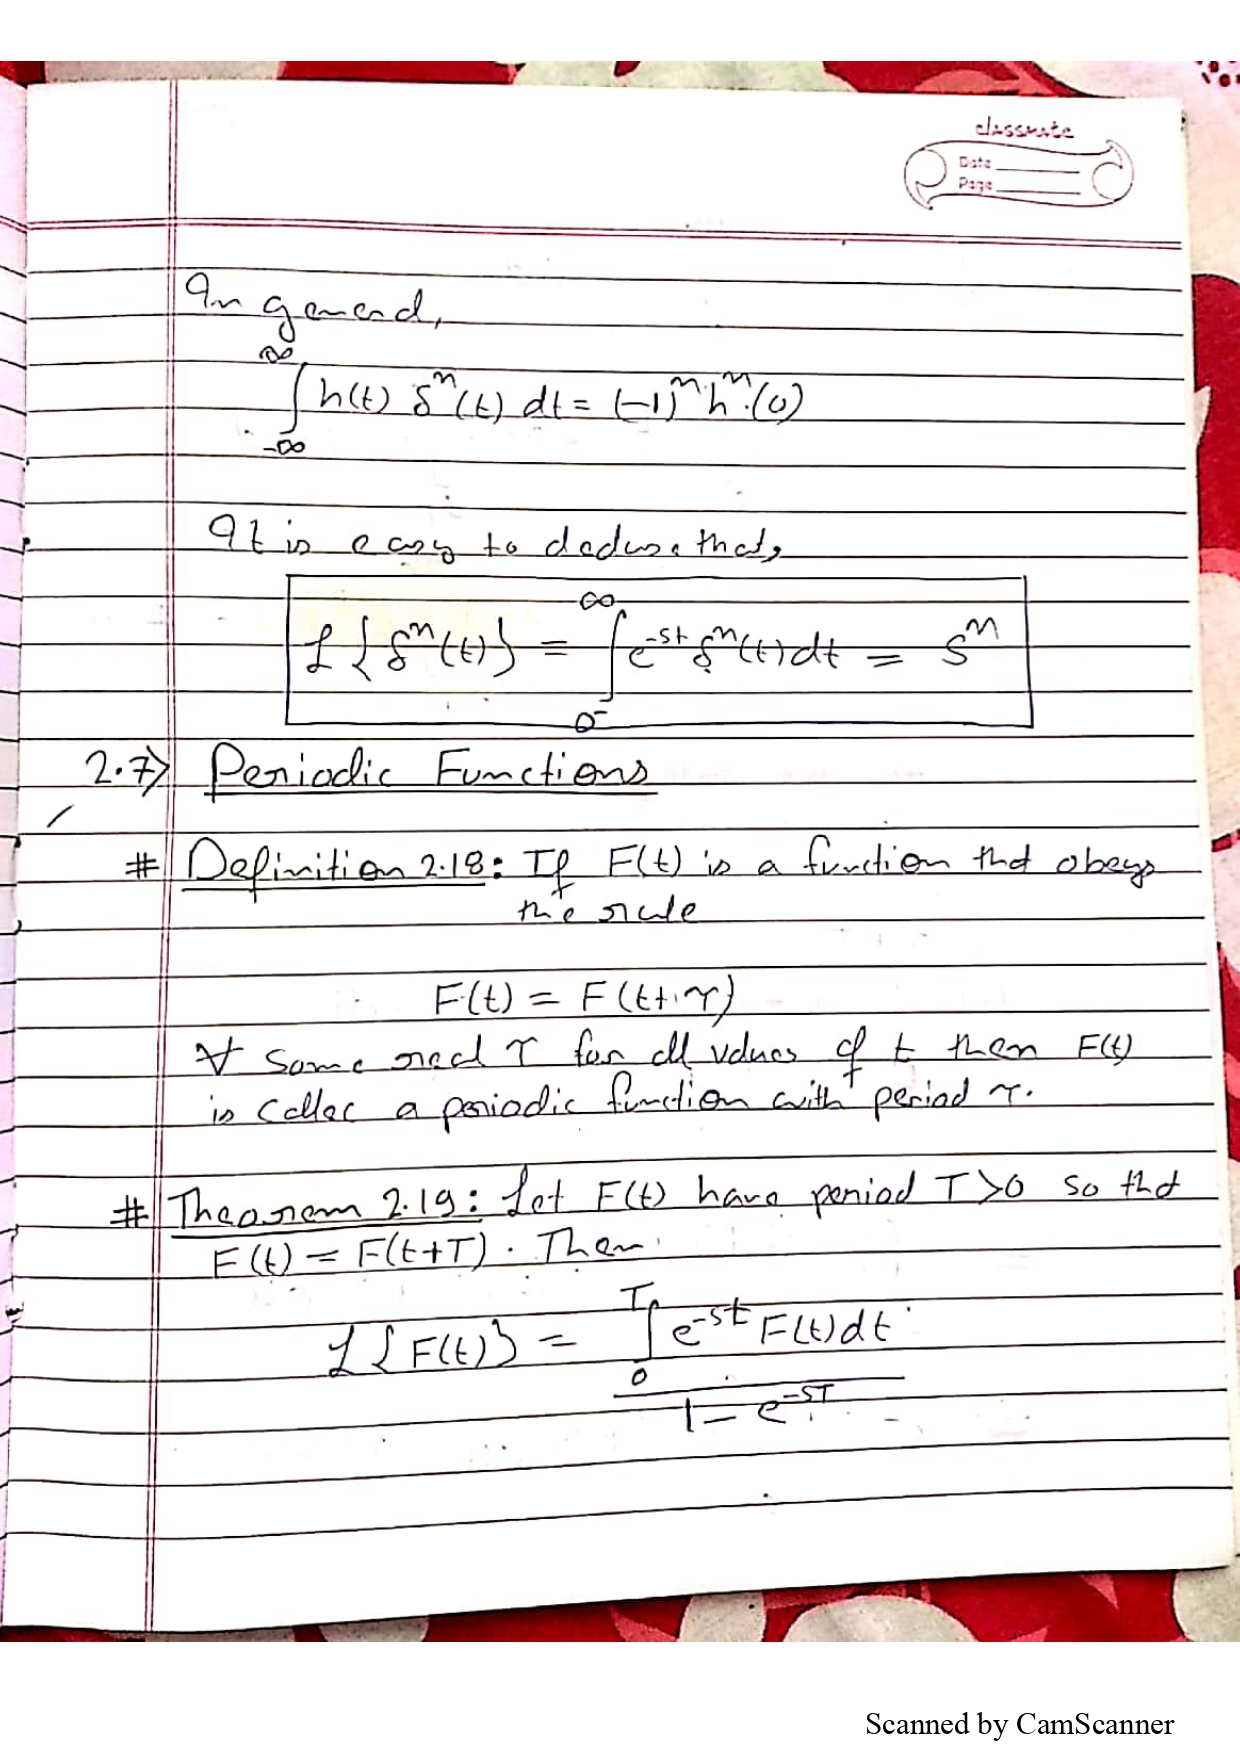 classmate
Date
Page
In general,
∫_{-∞}^{∞} h(t) δ^n(t) dt = (-1)^n h^n(0)
It is easy to deduce that,
ℒ{δ^n(t)} = ∫_{0^-}^{∞} e^{-st} δ^n(t) dt = s^n
2.7> Periodic Functions
# Definition 2.18: If F(t) is a function that obeys
the rule
F(t) = F(t+τ)
∀ some real τ for all values of t then F(t)
is called a periodic function with period τ.
# Theorem 2.19: Let F(t) have period T>0 so that
F(t) = F(t+T). Then
ℒ{F(t)} = ∫_0^T e^{-st} F(t) dt / 1 - e^{-sT}
Scanned by CamScanner